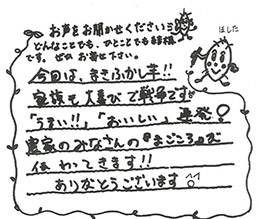 お声をお聞かせください
どんなことでも、ひとことでも結構
です。ぜひお寄せ下さい。
ほした
今回は、まきふかし芋!!
家族も大喜びで戦争です!!
「うまい!!」「おいしい」連発!
農家のみなさんの『まごころ』が
伝わってきます!!
ありがとうございます